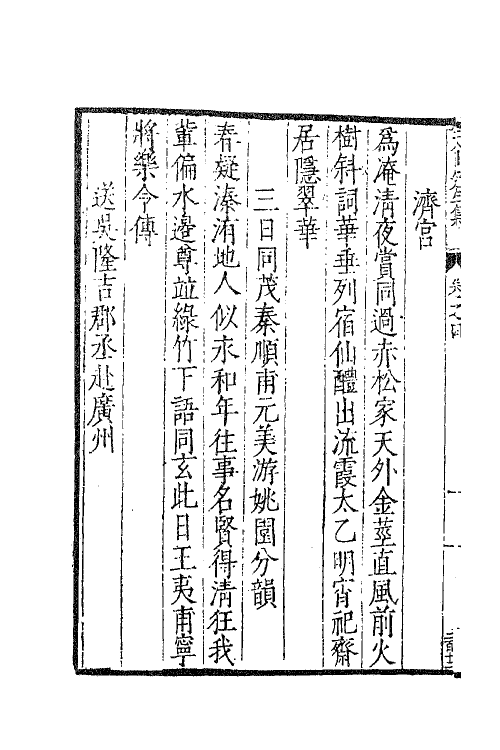 濟宫
爲淹清夜賞同過赤松家天外金莖直風前火
樹斜詞華垂列宿仙醴出流霞太乙明宵祀齋
居隱翠華
三日同茂秦順甫元美游姚園分韻
春疑溱洧地人似永和年往事名賢得清狂我
輩偏水邊尊竝綠竹下語同玄此日王夷甫寧
將樂令傳
送吳隆吉郡丞赴廣州
卷之四